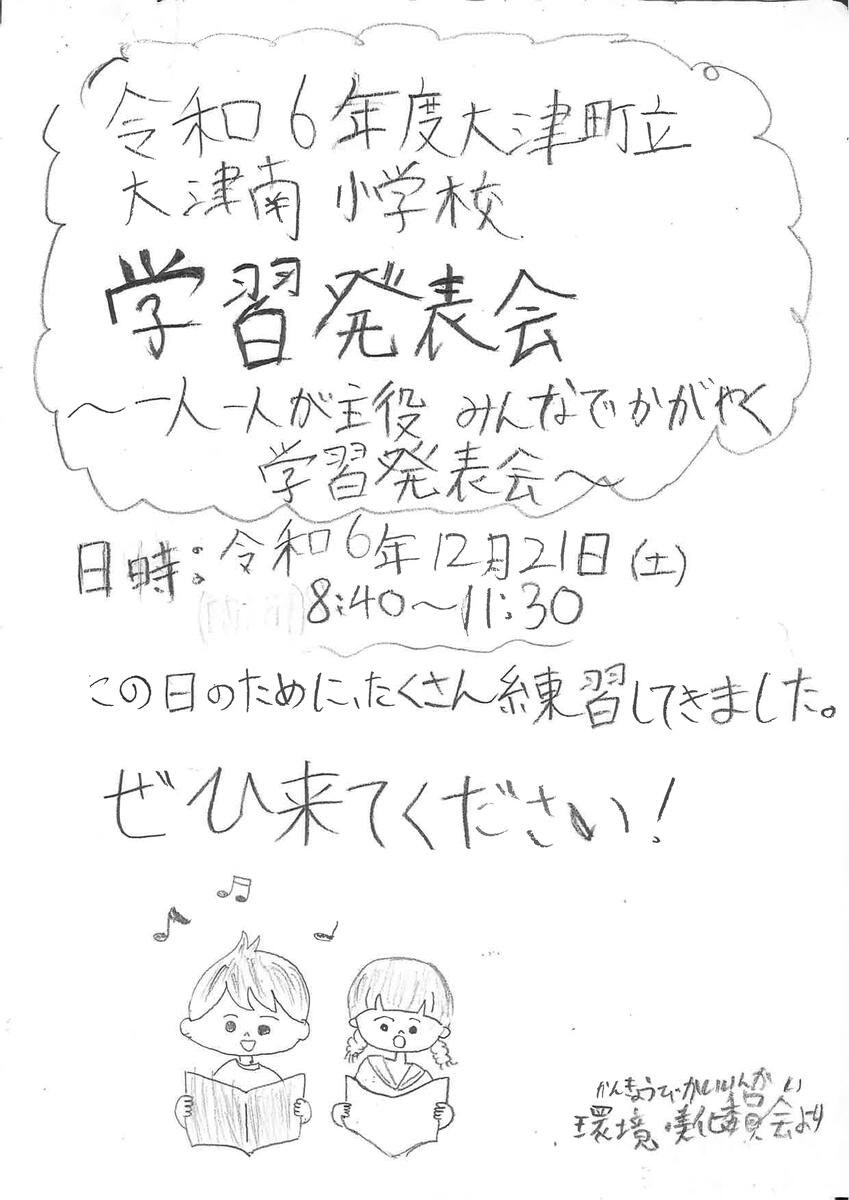 令和6年度大津町立
大津南小学校
学習発表会
〜一人一人が主役 みんなでかがやく
学習発表会〜
日時:令和6年12月21日(土)
8:40〜11:30
この日のために、たくさん練習してきました。
ぜひ来てください!
かんきょうびかいいんかい
環境美化委員会より